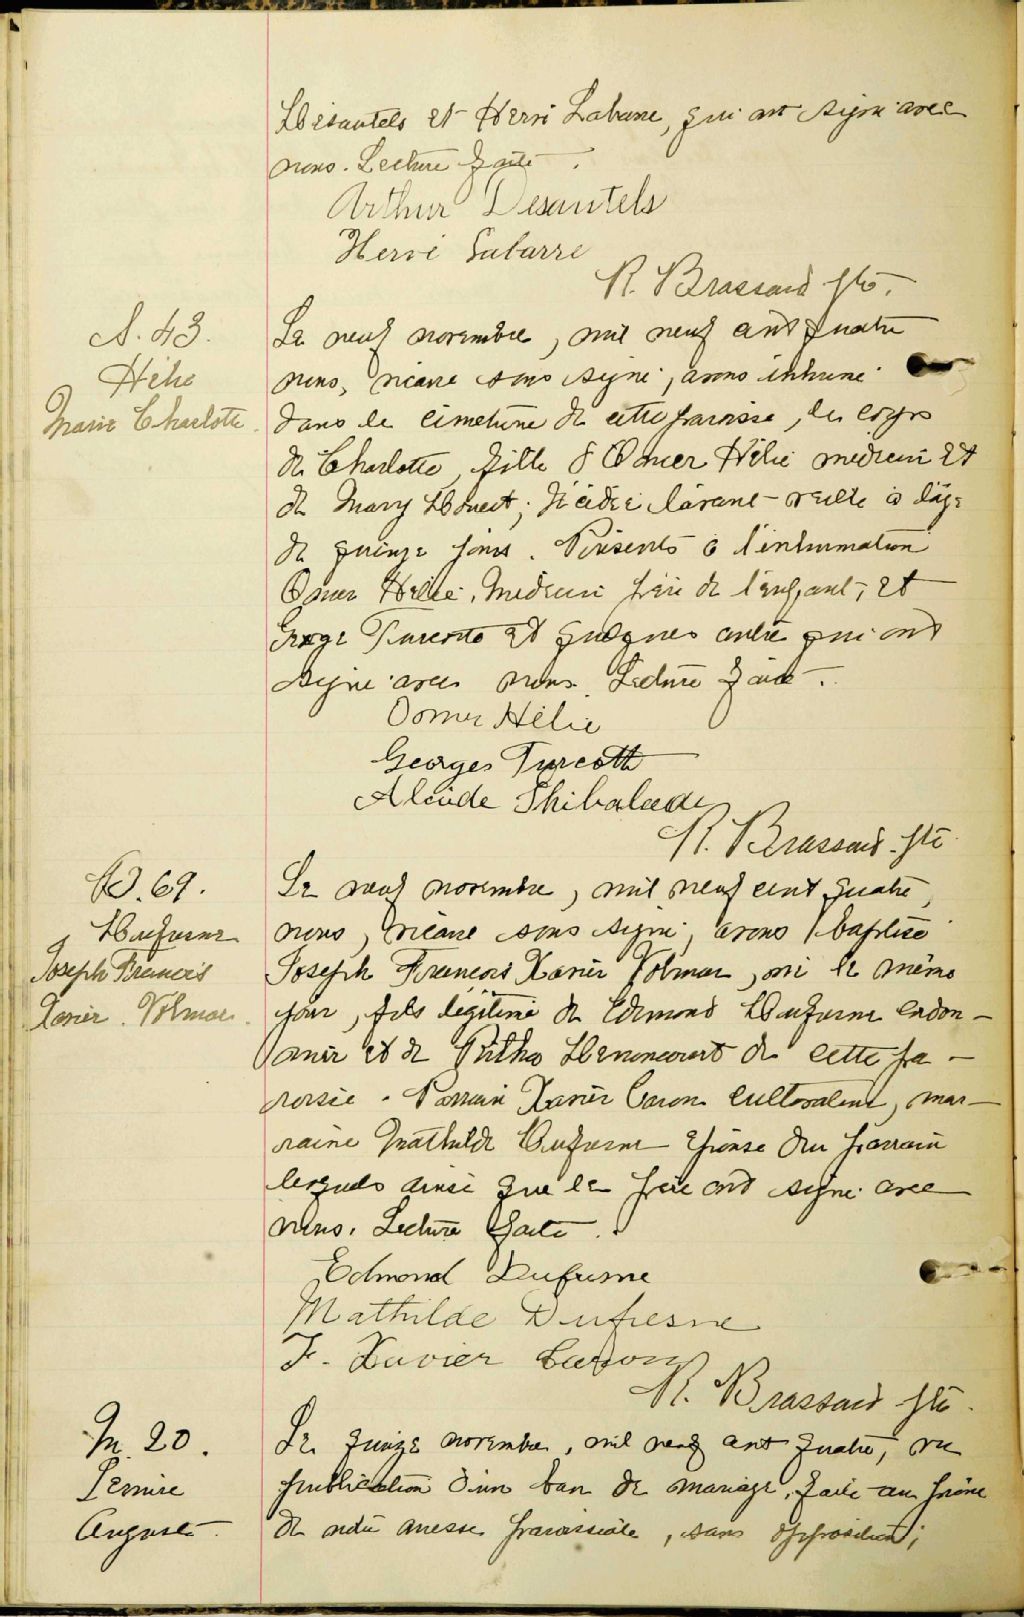 Désautels et Hervé Labarre, qui ont signé avec
nous. Lecture faite.
Arthur Desautels
Hervé Labarre
R. Brassard ptre.
S. 43.
Hélie
Marie Charlotte.
Le neuf novembre, mil neuf cent quatre
nous, vicaire sous signé, avons inhumé
dans le cimetière de cette paroisse, le corps
de Charlotte, fille d'Omer Hélie médecin et
de Mary ; décédée l'avant-veille à l'âge
de quinze jours. Présents à l'inhumation
Omer Hélie, médecin père de l'enfant, et
George Turcotte et quelques autres qui ont
signé avec nous. Lecture faite.
Omer Hélie
Georges Turcotte
Alcide
R. Brassard ptre
B. 69.
Dufresne
Joseph Francois
Xavier. Volmar.
Le neuf novembre, mil neuf cent quatre,
nous, vicaire sous signé, avons baptisé
Joseph Francois Xavier Volmar, né le même
jour, fils légitime de Edmond Dufresne cordon-
nier et de Henoncourt de cette pa-
roisse. Parrain Xavier Caron cultivateur, mar-
raine Mathilde Dufresne épouse du parrain
lesquels ainsi que le père ont signé avec
nous. Lecture faite.
Edmond Dufresne
Mathilde Dufresne
F. Xavier Caron
R. Brassard ptre.
M. 20.
Auguste.
Le quinze novembre, mil neuf cent quatre, vu
publication d'un ban de mariage, faite au prône
de notre messe paroissiale, sans opposition;